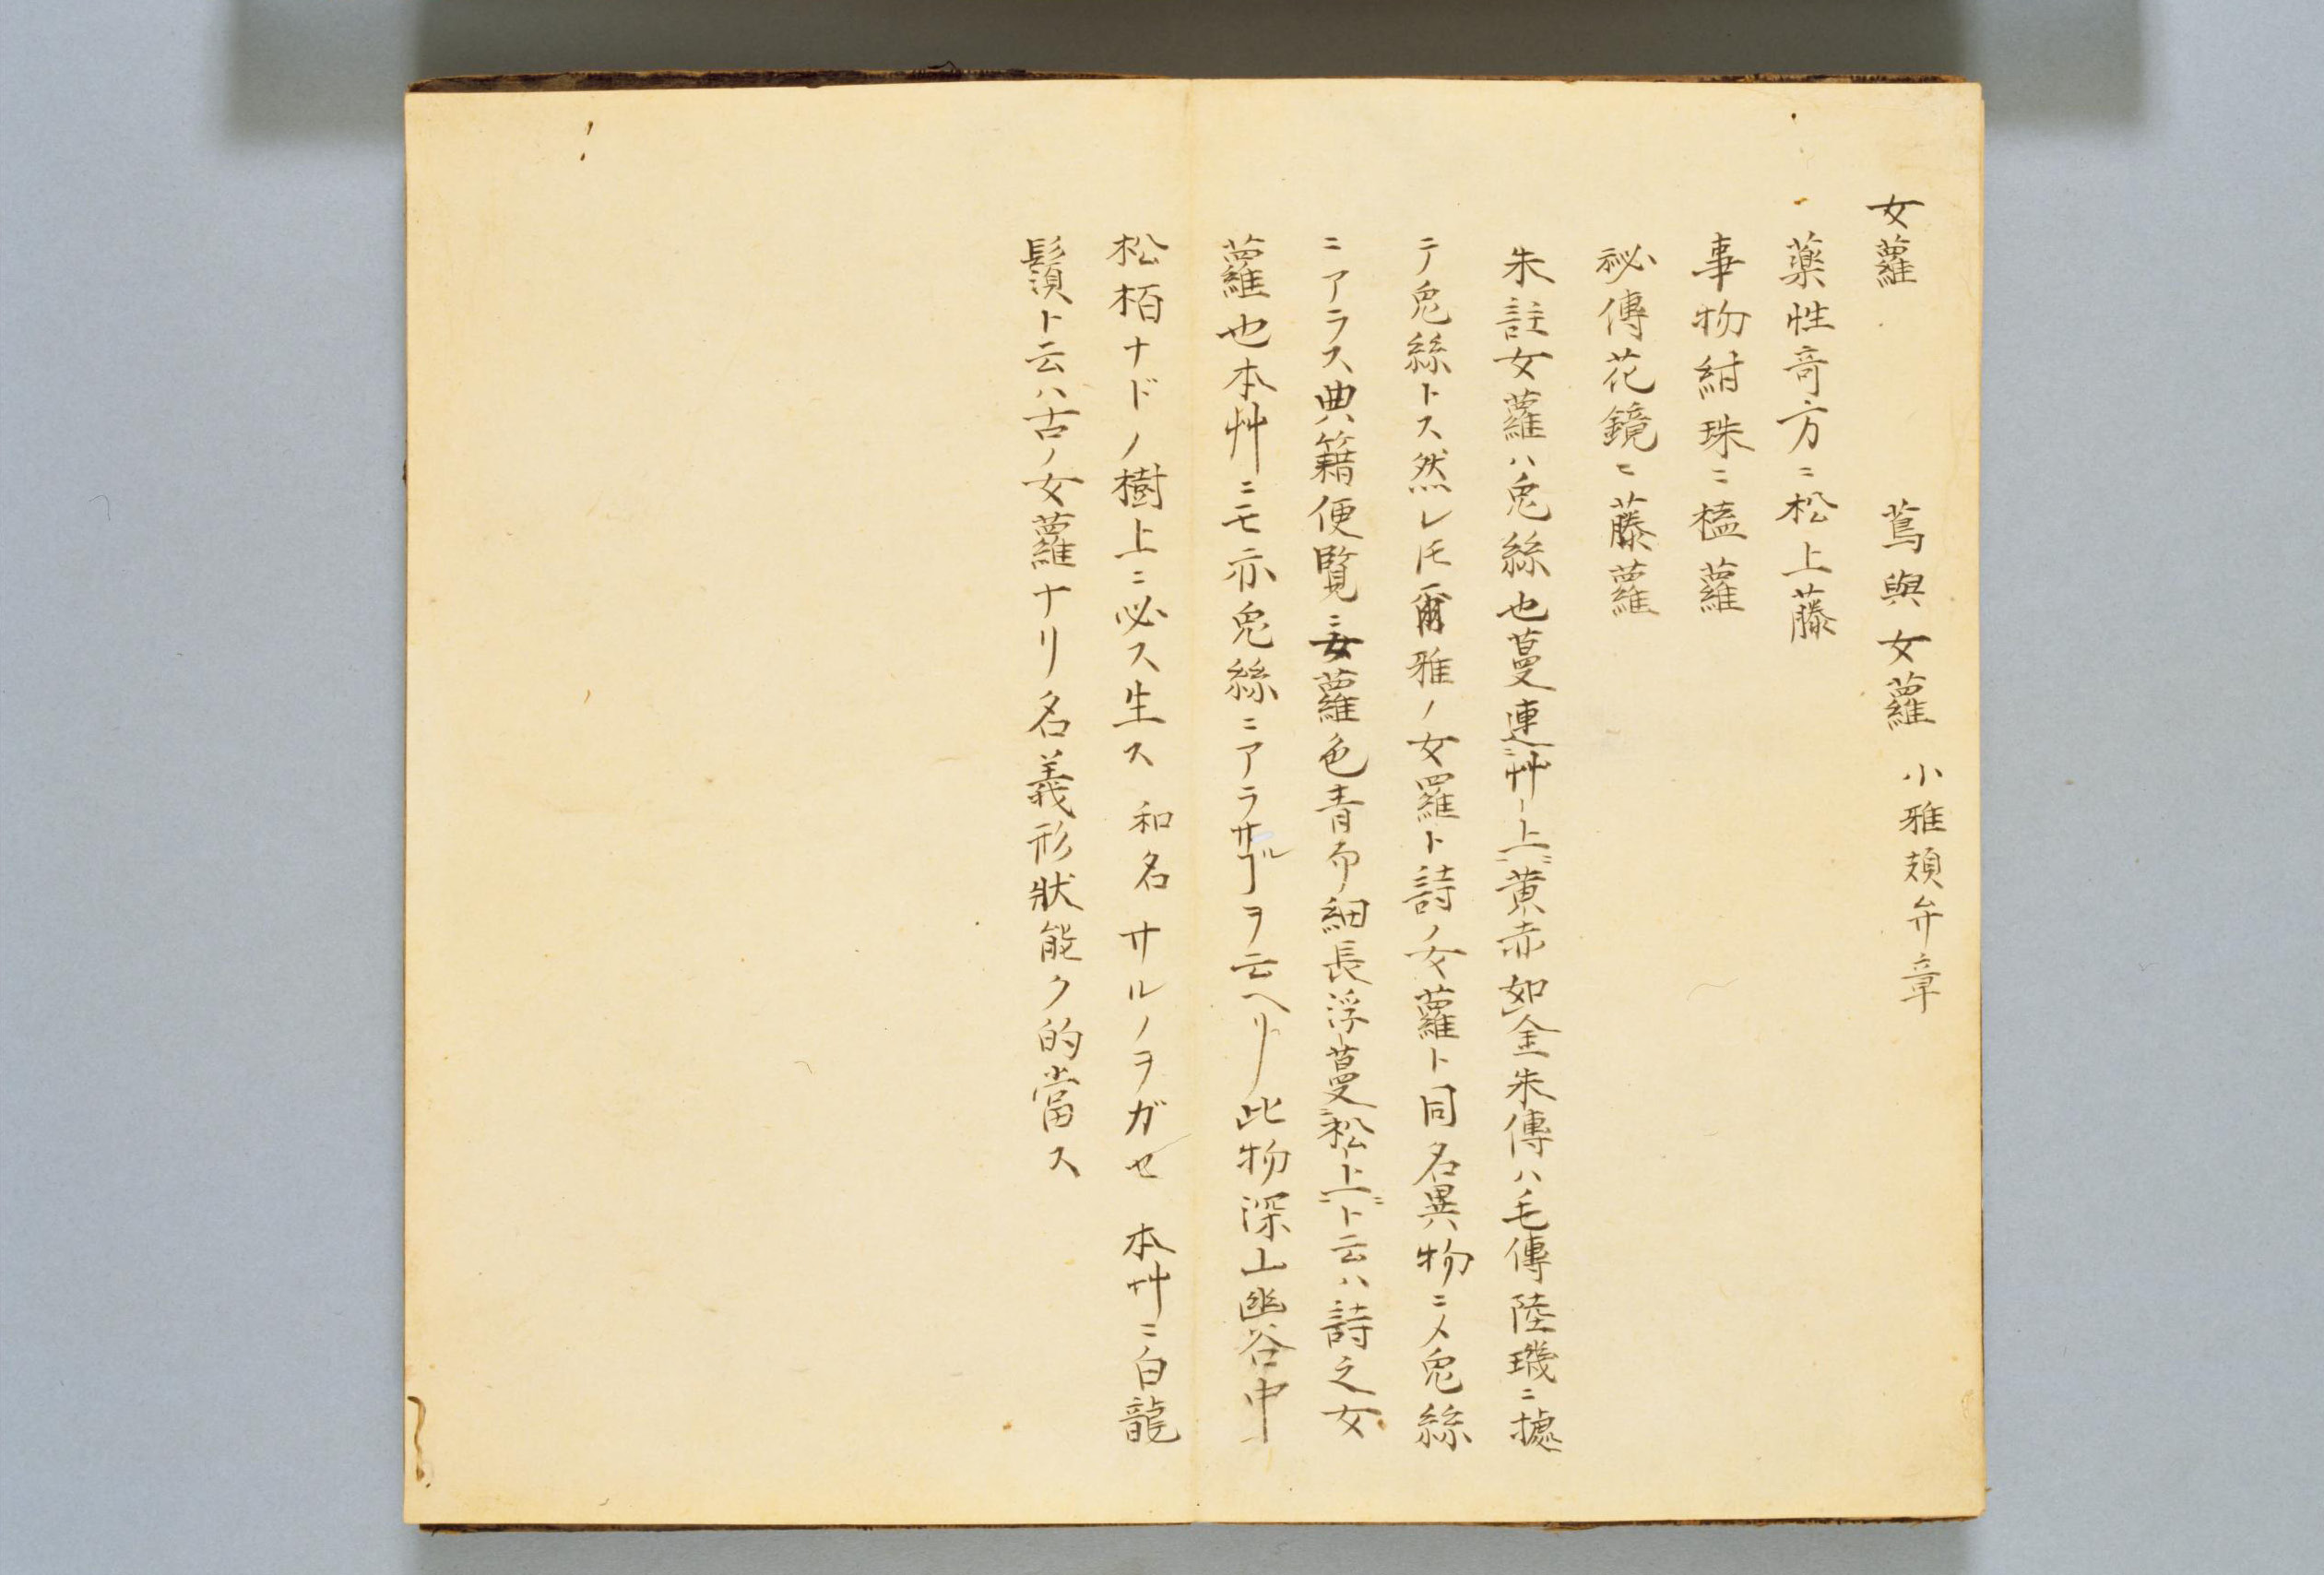 女蘿　蔦與女蘿 小雅頍弁章
藥性奇方ニ松上藤
事物紺珠ニ櫨蘿
祕傳花鏡ニ藤蘿
朱註女蘿ハ兎絲也蔓連艸上黄赤如金朱傳ハ毛傳陸璣ニ據
テ兎絲トス然レ𪜈爾雅ノ女羅ト詩ノ女蘿ト同名異物ニメ兎絲
ニアラス典籍便覧ニ女蘿色青而細長浮蔓松上ト云ハ詩之女
蘿也本艸ニモ亦兎絲ニアラザルヿヲ云ヘリ此物深山幽谷中
松栢ナドノ樹上ニ必ス生ス 和名サルノヲガセ 本艸ニ白龍
鬚ト云ハ古ノ女蘿ナリ名義形狀能ク的當ス